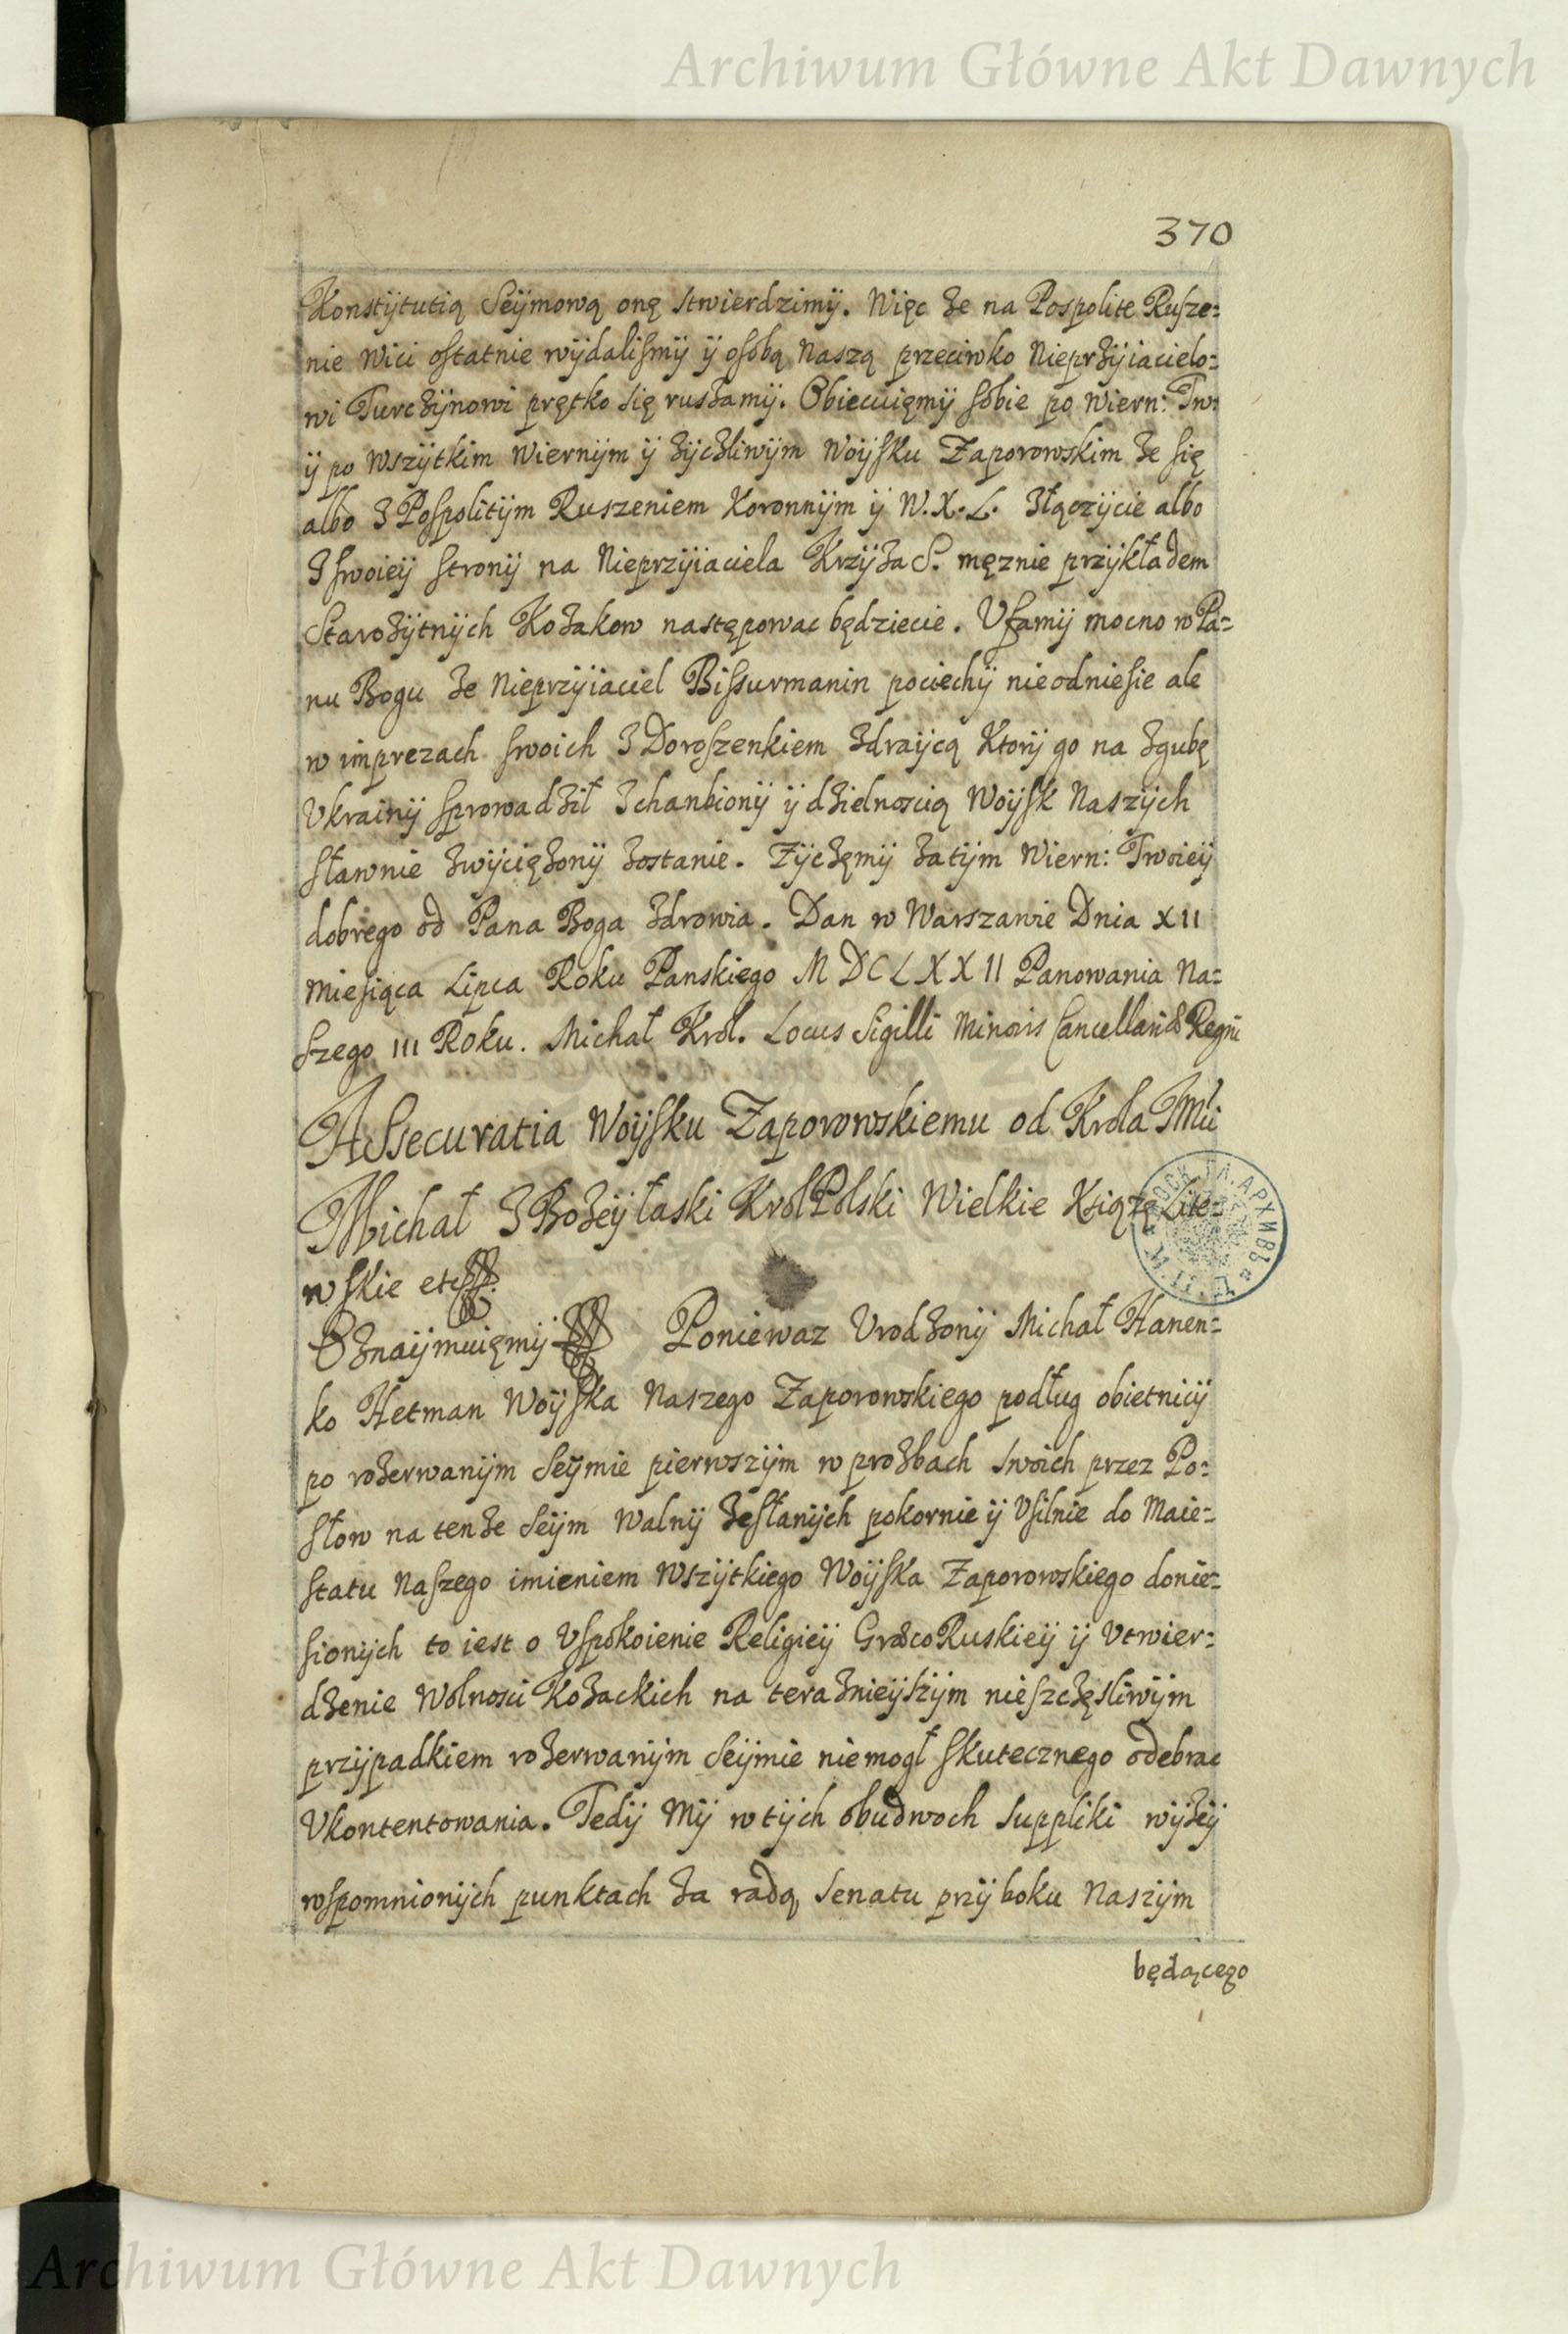 Archiwum Główne Akt Dawnych
370
Konstÿtutią Seÿmową onę stwierdzimÿ. Więc że na Pospolite Rusze=
nie Wici ostatnie wÿdalismÿ ÿ osobą Naszą przeciwko Nieprzÿiacielo=
wi Turczÿnowi prętko się ruszamÿ. Obiecuięmÿ sobie po Wiern: Tw:
ÿ po Wszÿtkim Wiernÿm ÿ zÿczliwÿm Woÿsku Zaporowskim że się
albo z Pospolitÿm Ruszeniem Koronnÿm ÿ W. X. L. złączÿcie albo
z swoieÿ stronÿ na Nieprzÿiaciela Krzÿża S. męznie przÿkładem
Starożÿtnÿch Kozakow następowac będziecie. Ufamÿ mocno w Pa=
nu Bogu że Nieprzÿiaciel Bissurmanin pociechÿ nieodniesie ale
w imprezach swoich z Doroszenkiem zdraÿcą Ktorÿ go na zgubę
Ukrainÿ sprowadził zchanbionÿ ÿ dzielnoscią Woÿsk Naszÿch
sławnie zwÿciężonÿ zostanie. Zÿczęmÿ zatÿm Wiern: Twoieÿ
dobrego od Pana Boga zdrowia. Dan w Warszawie Dnia XII
Miesiąca Lipca Roku Panskiego MDCLXXII Panowania Na=
szego III Roku. Michał Krol. Locus Sigilli Minoris Cancellariæ Regni
Assecuratia Woÿsku Zaporowskiemu od Krola JMci
Michał z Bożeÿ łaski Krol Polski Wielkie Xiążę Lite=
wskie etc
Oznaÿmuięmÿ Poniewaz Urodzonÿ Michał Hanen=
ko Hetman Woÿska Naszego Zaporowskiego podług obietnicÿ
po rozerwanÿm Seÿmie pierwszÿm w prozbach swoich przez Po=
słow na tenże Seÿm Walnÿ zesłanÿch pokornie ÿ Usilnie do Maie=
statu Naszego imieniem Wszÿtkiego Woÿska Zaporowskiego donie=
sionÿch to iest o Uspokoienie Religieÿ Græco Ruskieÿ ÿ Utwier=
dzenie Wolnosci Kozackich na teraznieÿszÿm nieszczęsliwÿm
przÿpadkiem rozerwanÿm Seÿmie niemogł skutecznego odebrac
Ukontentowania. Tedÿ Mÿ w tÿch obudwoch suppliki wÿżeÿ
wspomnionÿch punktach za radą Senatu przÿ boku Naszÿm
będącego
Archiwum Główne Akt Dawnych